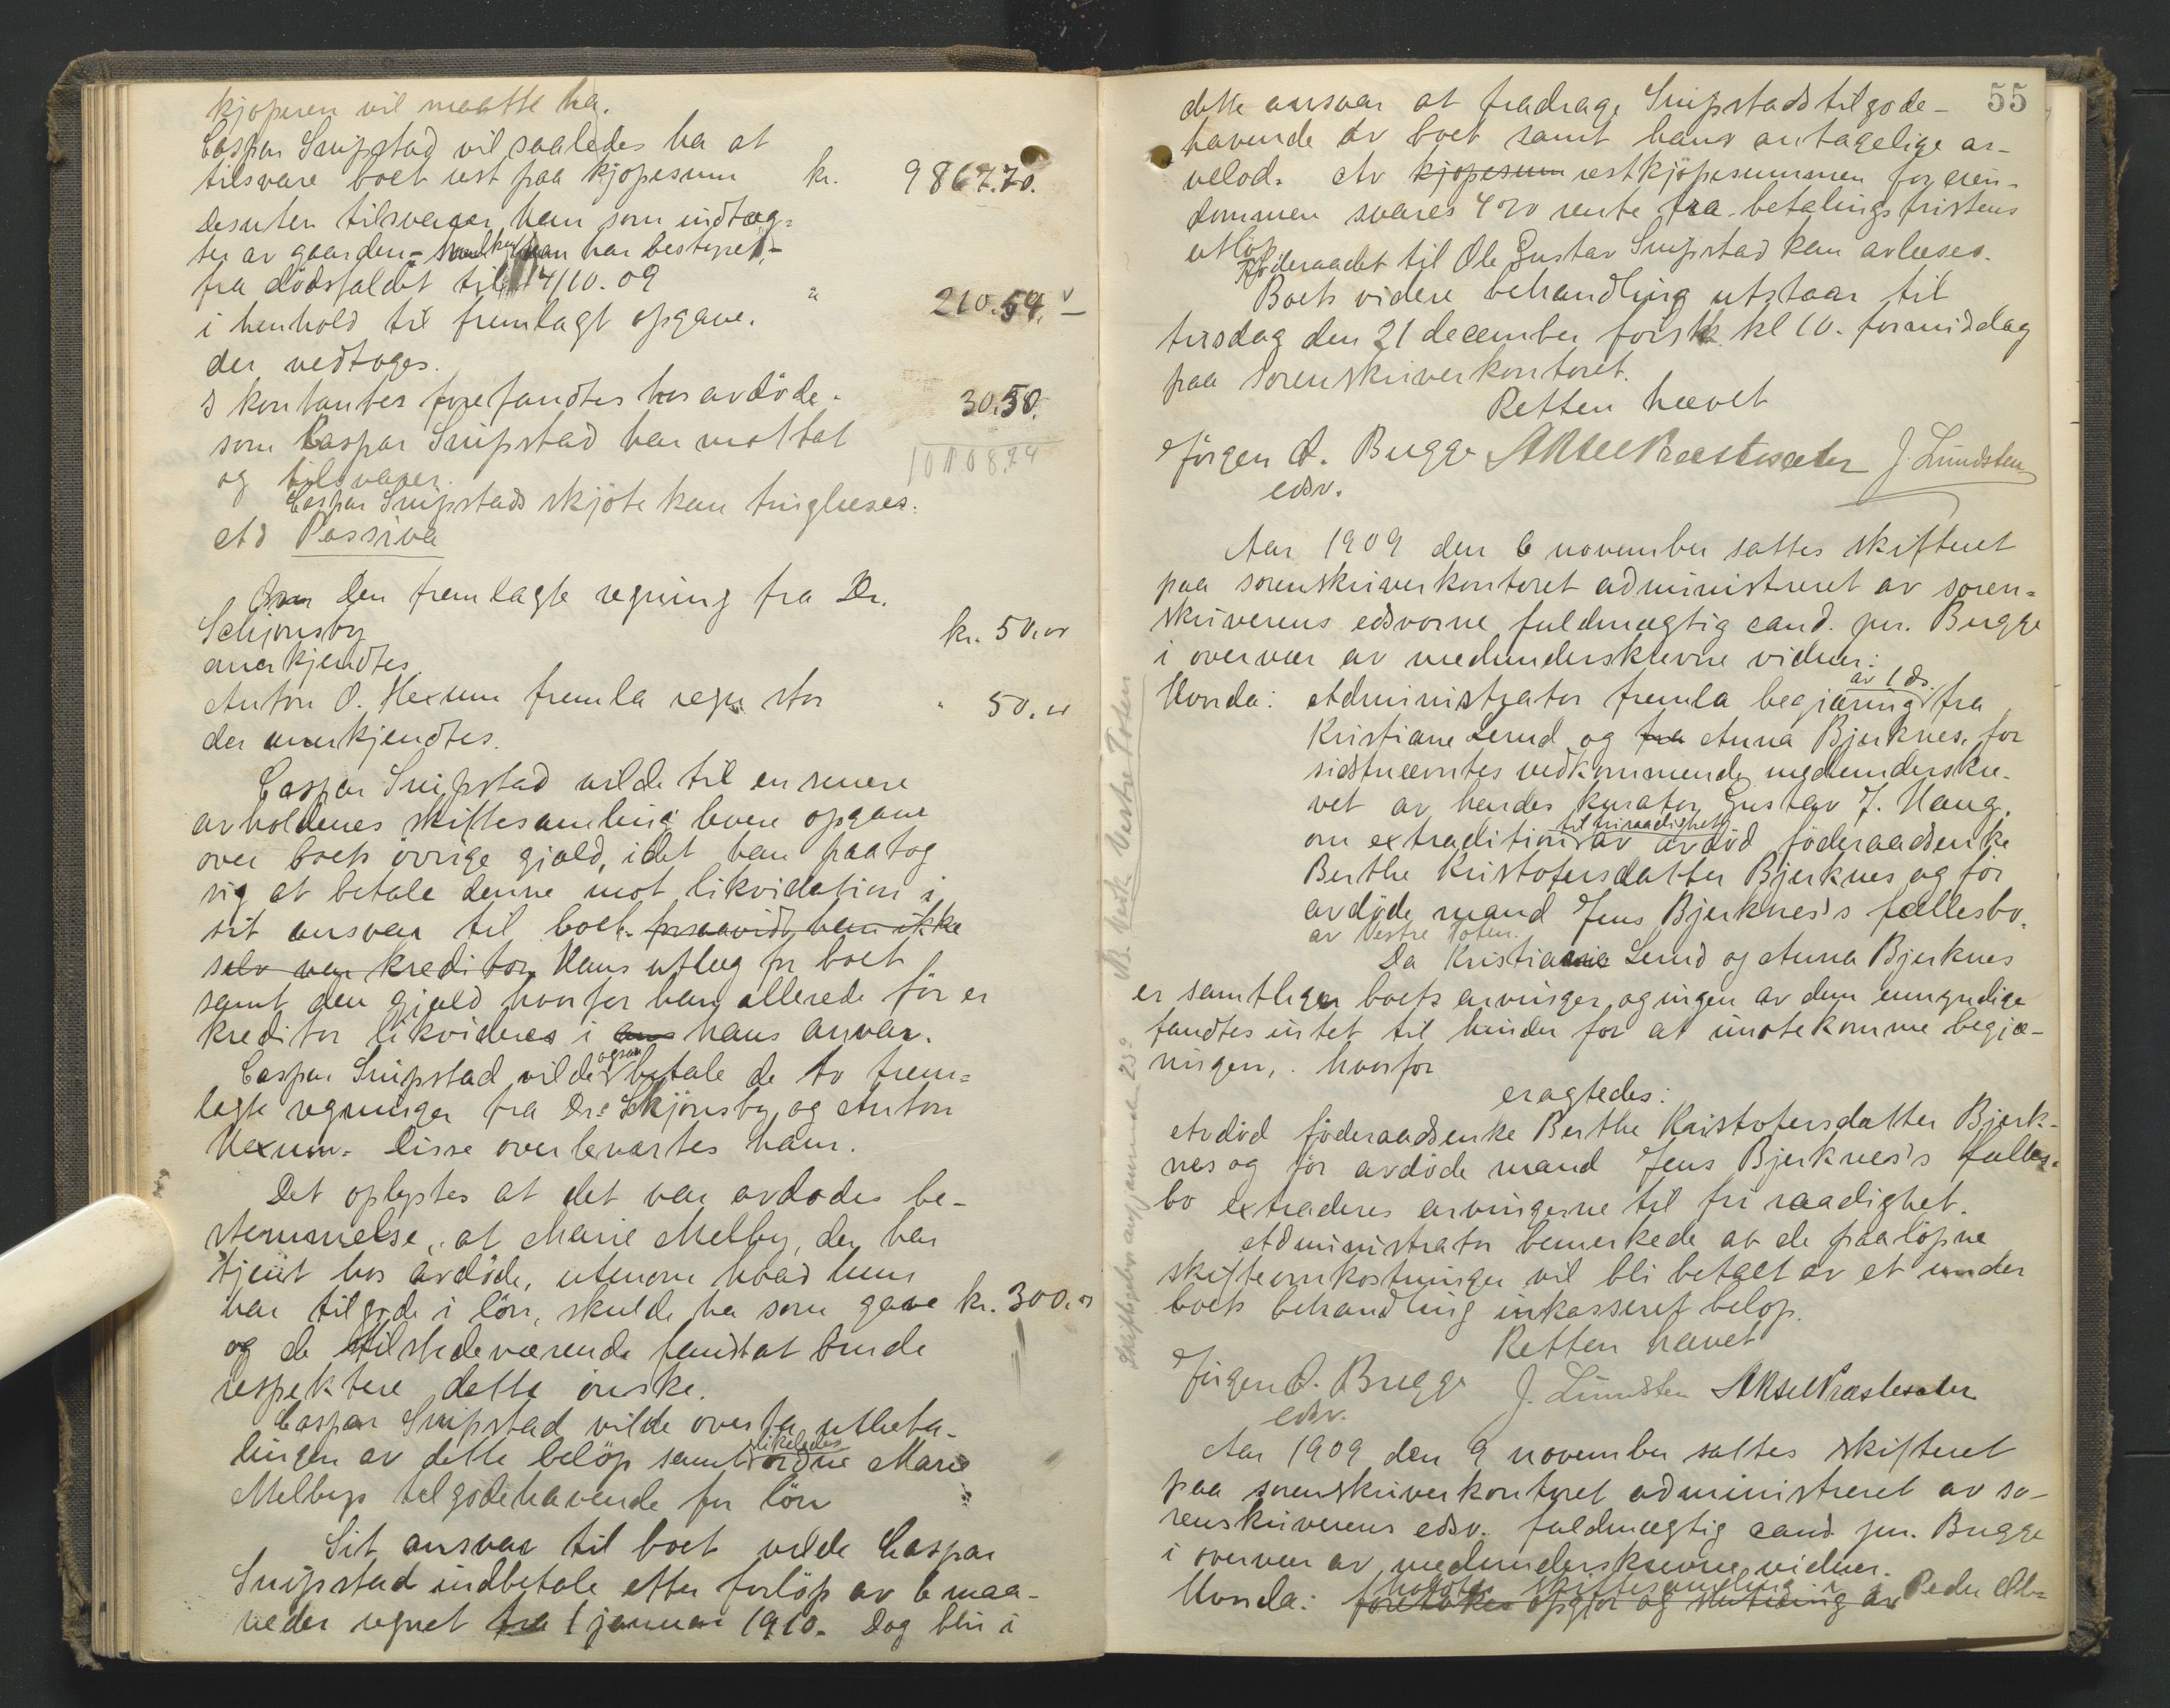 kjøperen vil maatte ha.
Caspar Snipstad vil saaledes ha at
tilsvare boet rest paa kjøpesum kr. 9867.70.
Desuten tilsvarer han som indtæg-
ter av gaarden – han har bestyret, –
fra dödsfaldet til 14/10. 09
i henhold til fremlagt opgave. " 210.54.
der vedtoges.
I kontanter forefandtes hos avdöde. 30.50.
som Caspar Snipstad har mottat
og tilsvarer. 10108.74
Caspar Snipstads skjöte kan tinglæses.
Ad Passiva
Den fremlagte regning fra Dr.
Schjönsby kr. 50.00
anerkjendtes
Anton O. Hexum fremla regn. stor " 50.00
der anerkjendtes.
Caspar Snipstad vilde til en senere
avholdenes skiftesamling levere opgave
over boets övrige gjæld, idet han paatog
sig at betale denne mot likvidation i
sit ansvar til boet. forsaavidt han ikke
selv var kreditor. Hans utlæg for boet
samt den gjæld hvorfor han allerede för er
kreditor likvideres i ans hans ansvar.
Caspar Snipstad vilde ogsaa betale de to frem-
lagte regninger fra Dr. Skjönsby og Anton
Hexum. Disse overleveretes ham.
Det oplystes at det var avdödes be-
stemmelse, at Marie Melby, der har
tjent hos avdöde, utenom hvad hun
har tilgode i lön, skulde ha som gave kr. 300.00
og de tilstedeværende fandt at burde
respektere dette önske.
Caspar Snipstad vilde overta utbeta-
lingen av dette belöp samt likeledes ordne Marie
Melbys tilgodehavende for lön
Sit ansvar til boet vilde Caspar
Snipstad indbetale efter forlöp av 6 maa-
neder regnet fra 1 januar 1910. Dog blir i
55
dette ansvar at fradrage Snipstads tilgode-
havende av boet samt hans antagelige ar-
velod. Av kjøpesum restkjöpesummen for eien-
dommen svares 4 % rente fra betalingsfristens
utlöp
Föderaadet til Ole Gustav Snipstad kan avlæses.
Boets videre behandling utstaar til
tirsdag den 21 december förstk. kl 10. formiddag
paa sorenskriverkontoret.
Retten hævet
Jörgen A. Bugge Aksel Præstesæter J. Lundsten
edsv.
Aar 1909 den 6 november sattes skifteret
paa sorenskriverkontoret administreret av soren-
skriverens edsvorne fuldmægtig cand. jur. Bugge
i overvær av medunderskrevne vidner:
Hvorda: Administrator fremla begjæring av 1 ds. fra
Kristiane Lerud og fra Anna Bjerknes, for
sidstnævntes vedkommende medunderskre-
vet av hendes kurator Gustav J. Haug,
om extradition til fri raadighet av avdöd föderaadsenke
Berthe Kristofersdatter Bjerknes og för
avdöde mand Jens Bjerknes's fællesbo.
av Vestre Toten.
Da Kristiane Lerud og Anna Bjerknes
er samtlige boets arvinger, og ingen av dem umyndige
fandtes intet til hinder for at imötekomme begjæ-
ringen, hvorfor
eragtedes:
Avdöd föderaadsenke Berthe Kristofersdatter Bjerk-
nes og för avdöde mand Jens Bjerknes's fælles-
bo extraderes arvingerne til fri raadighet.
Administrator bemerkede at de paalöpne
skifteomkostninger vil bli betalt av et under
boets behandling inkasseret belöp.
Retten hævet
Jörgen A. Bugge J. Lundsten Aksel Præstesæter
edsv.
Aar 1909 den 9 november sattes skifteret
paa sorenskriverkontoret administreret av so-
renskriverens edsv. fuldmægtig cand. jur. Bugge
i overvær av medunderskrevne vidner.
holdtes skiftesamling i
Hvorda: foretokes opgjör og slutning av Peder Ab-
Vestre Toten